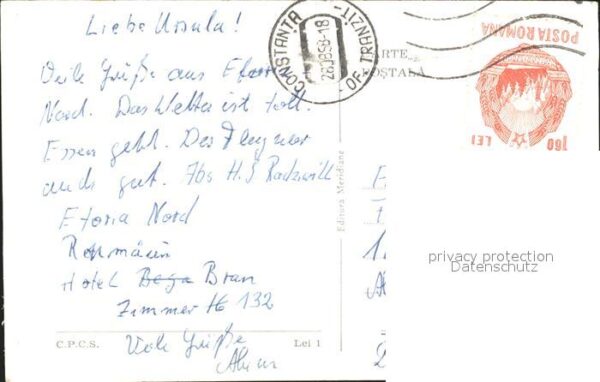 Liebe Ursula!
Viele Grüße aus Eforie
Nord. Das Wetter ist toll.
Essen geht. Der Flug war
auch gut. Abs H.J Radzwill
Eforia Nord
Rumänien
Hotel Bega Bran
Zimmer 132
Viele Grüße
C.P.C.S.
Lei 1
Editura Meridiane
CONSTANTA
OF. TRANZIT
POSTALA
POSTA ROMANA
1,60
LEI
privacy protection
Datenschutz